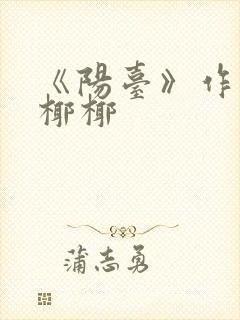 《陽臺》作
椰椰
蒲志勇